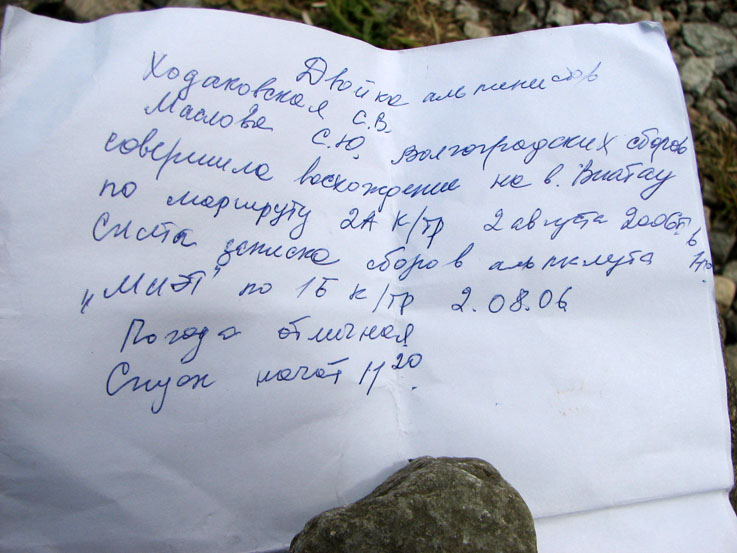 Двойка альпинистов
Ходаковская С.В.
Маслова С.Ю. Волгоградских сборов
совершила восхождение на в. Виатау
по маршруту 2А к/тр 2 августа 2006г. в
Снята записка сборов альпклуба
"МИЭТ" по 1Б к/тр 2.08.06
Погода отличная
Спуск начат 11 20